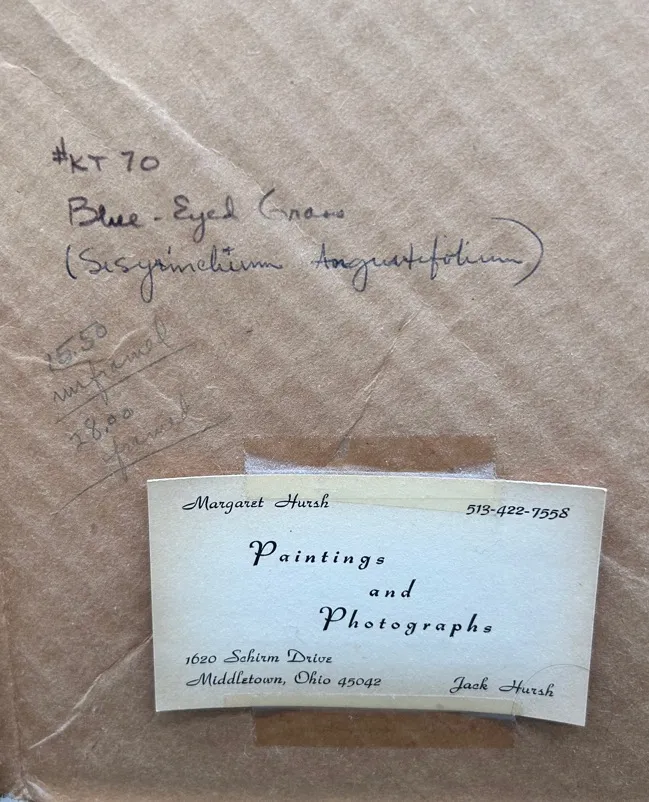 #KT 70
Blue-Eyed Grass
(Sisyrinchium Angustifolium)
15.50
unframed
28.00
framed
Margaret Hursh
513-422-7558
Paintings
and
Photographs
1620 Schirm Drive
Middletown, Ohio 45042
Jack Hursh